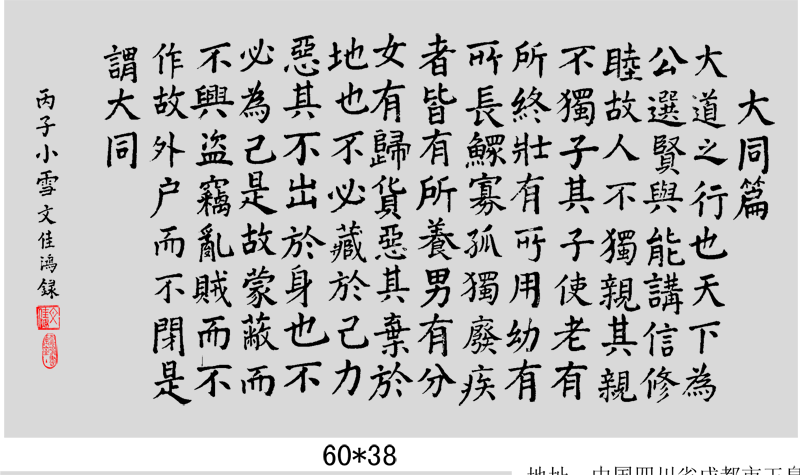 大同篇
大道之行也天下為
公選賢與能講信修
睦故人不獨親其親
不獨子其子使老有
所終壯有所用幼有
所長鰥寡孤獨廢疾
者皆有所養男有分
女有歸貨惡其棄於
地也不必藏於己力
惡其不出於身也不
必為己是故蒙蔽而
不興盜竊亂賊而不
作故外户而不閉是
謂大同
丙子小雪文佳鴻録
60*38
地址 中国四川省成都市